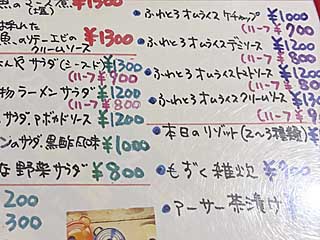 魚の
(塩) ¥1300
魚のソテーエビの
クリームソース ¥1300
サラダ(シーズト) ¥1300
(ハーフ ¥900
物ラーメンサラダ ¥1200
(ハーフ ¥800
サラダ,アボカドソース ¥1200
ンのサラダ,黒酢風味 ¥1000
な野菜サラダ ¥800
200
300
・ふわとろオムライスケチャップ ¥1000
(ハーフ ¥700
・ふわとろオムライスデミソース ¥1200
(ハーフ ¥800
・ふわとろオムライストマトソース ¥1200
(ハーフ ¥800
・ふわとろオムライスクリームソース ¥13
(ハーフ ¥9
・本日のリゾット(2~3種類) ¥
・もずく雑炊 ¥700
・アーサー茶漬け ¥